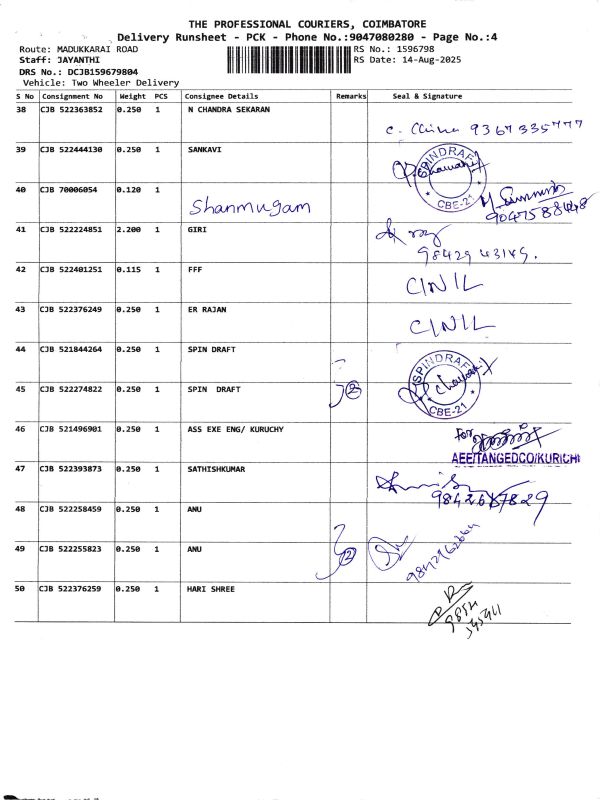 THE PROFESSIONAL COURIERS, COIMBATORE
Delivery Runsheet - PCK - Phone No.:9047080280 - Page No.:4
Route: MADUKKARAI ROAD
RS No.: 1596798
Staff: JAYANTHI
RS Date: 14-Aug-2025
DRS No.: DCJB159679804
Vehicle: Two Wheeler Delivery
S No Consignment No Weight PCS Consignee Details Remarks Seal & Signature
38 CJB 522363852 0.250 1 N CHANDRA SEKARAN
9367335777
39 CJB 522444130 0.250 1 SANKAVI
SPINDRAFT
CBE-21
40 CJB 70006054 0.120 1
Shanmugam
9047588448
41 CJB 522224851 2.200 1 GIRI
98429 43149.
42 CJB 522401251 0.115 1 FFF
C/N/L
43 CJB 522376249 0.250 1 ER RAJAN
C/N/L
44 CJB 521844264 0.250 1 SPIN DRAFT
SPINDRAFT
CBE-21
45 CJB 522274822 0.250 1 SPIN DRAFT
2
46 CJB 521496901 0.250 1 ASS EXE ENG/ KURUCHY
For
AEE/TANGEDCO/KURICHI
47 CJB 522393873 0.250 1 SATHISHKUMAR
48 CJB 522258459 0.250 1 ANU
49 CJB 522255823 0.250 1 ANU
2
50 CJB 522376259 0.250 1 HARI SHREE